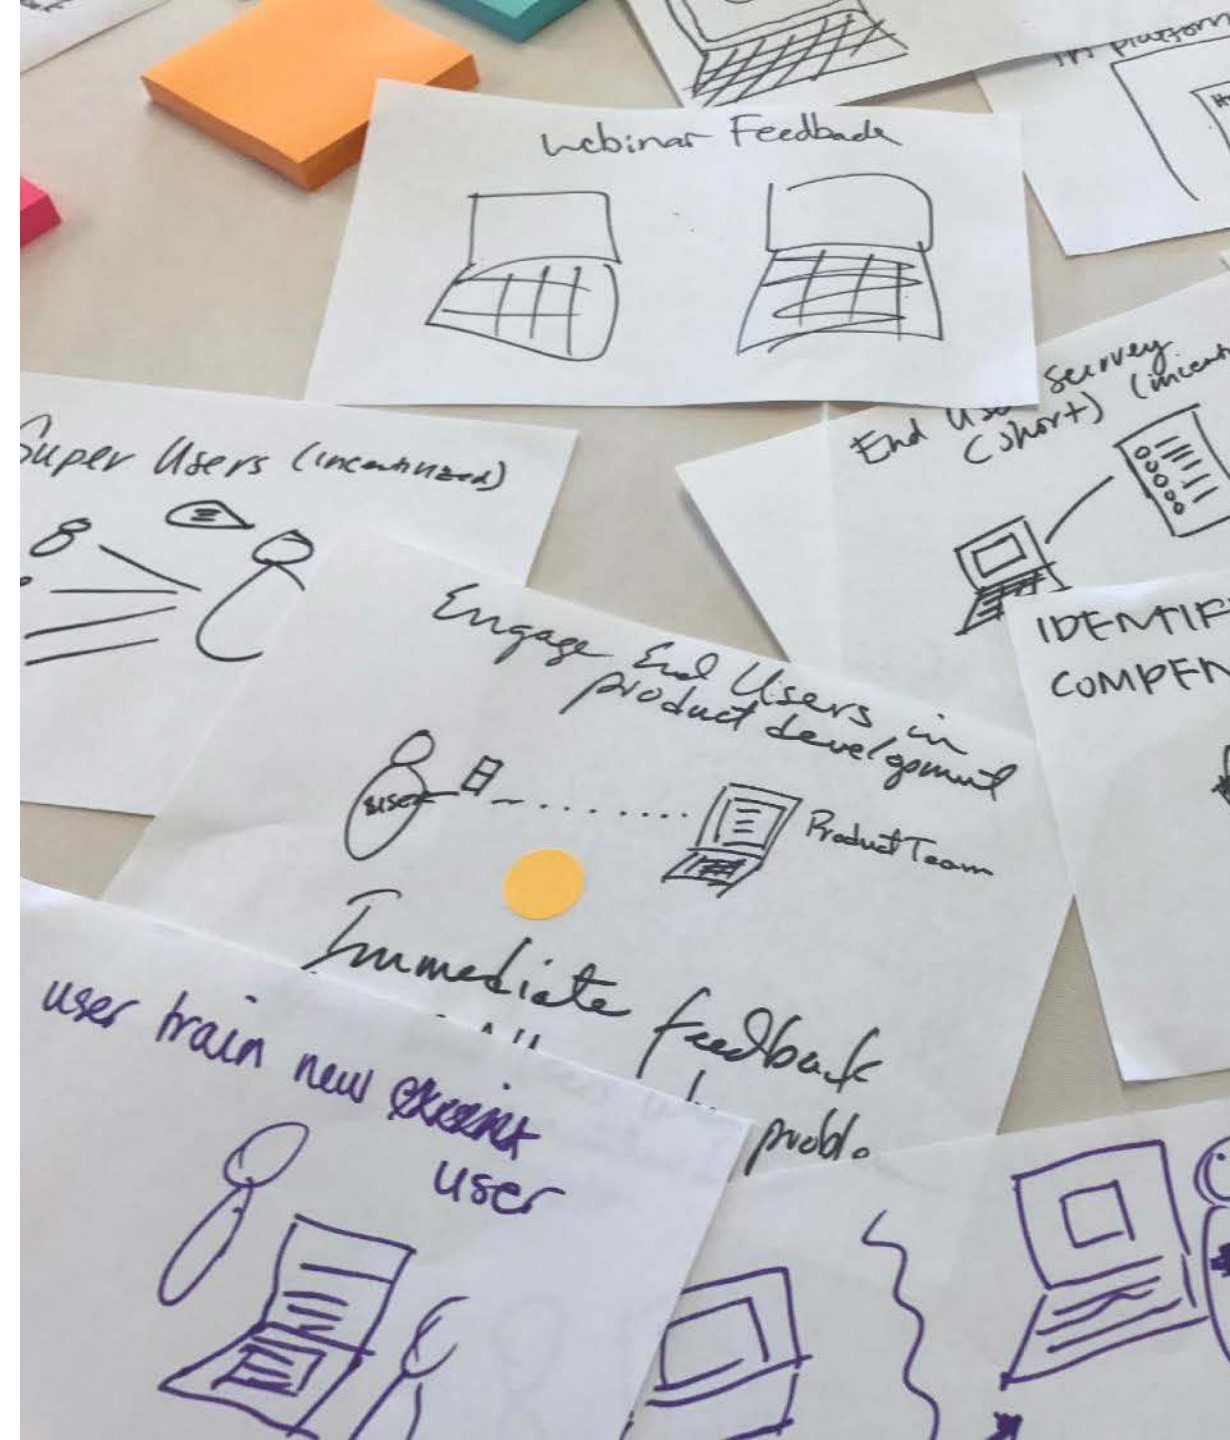 in platform
Webinar Feedback
End User survey
(cohort)
Super Users (incentivized)
IDENTIF
COMPEN
Engage End Users in
product development
user
Product Team
Immediate feedback
probl.
user train new
user